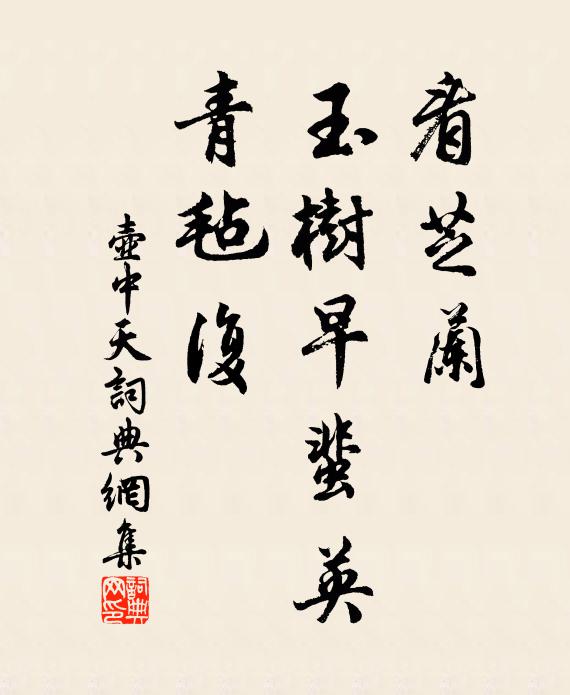 看芝蘭
玉樹早蜚英
青毡復
壺中天詞典網集
詞典網印